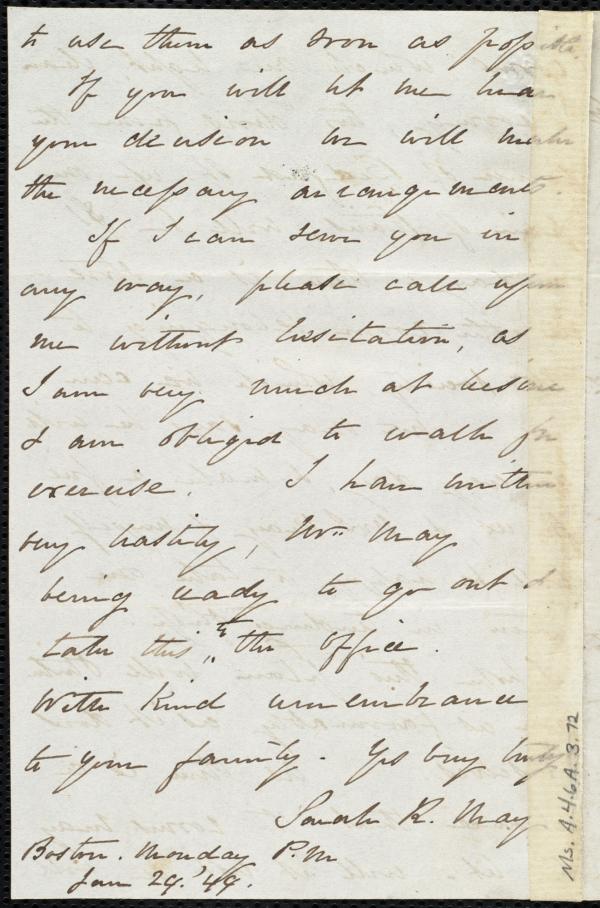 to use them as soon as possible.
If you will let me hear
your decision we will make
the necessary arrangements.
If I can serve you in
any way, please call upon
me without hesitation, as
I am very much at leisure
& am obliged to walk for
exercise. I have written
very hastily, Mr. May
being ready to go out &
take this to the office.
With kind remembrance
to your family. Yrs very truly
Sarah R. May
Boston. Monday P.M
Jan 29.' 49.
Ms. A.4.6A.3.72